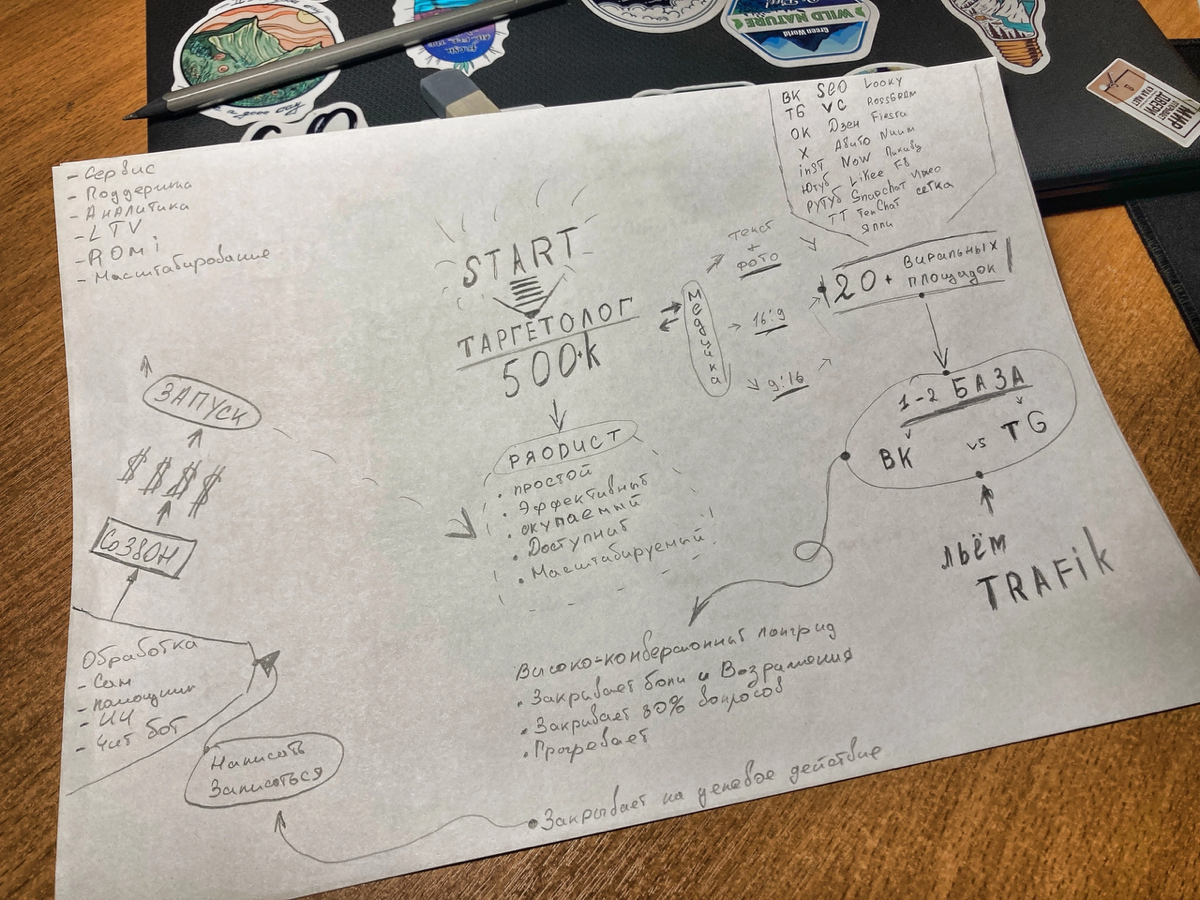 WILD NATURE
Green World
ВК SEO Looky
TG VC RossGRAM
ОК Дзен Fiesta
X Авито Nuum
inst Now Пикабу
Ютуб Likee FB
РУТУБ Snapchat Vimeo
TT TenChat сетка
Яппи
- Сервис
- Поддержка
- Аналитика
- LTV
- ROMi
- Масштабирование
START
ТАРГЕТОЛОГ
500+k
Медийка
текст
+
фото
16:9
9:16
20+ виральных
площадок
1-2 БАЗА
ВК vs TG
льём
TRAFik
PRODUCT
• простой
• Эффективный
• окупаемый
• Доступный
• Масштабируемый
ЗАПУСК
$$$$
СОЗВОН
Обработка
- Сам
- помощник
- ИИ
- Чат бот
Написать
Записаться
Высоко-конверсионный лонгрид
• Закрывает боли и Возражения
• Закрывает 80% вопросов
• Прогревает
• Закрывает на целевое действие